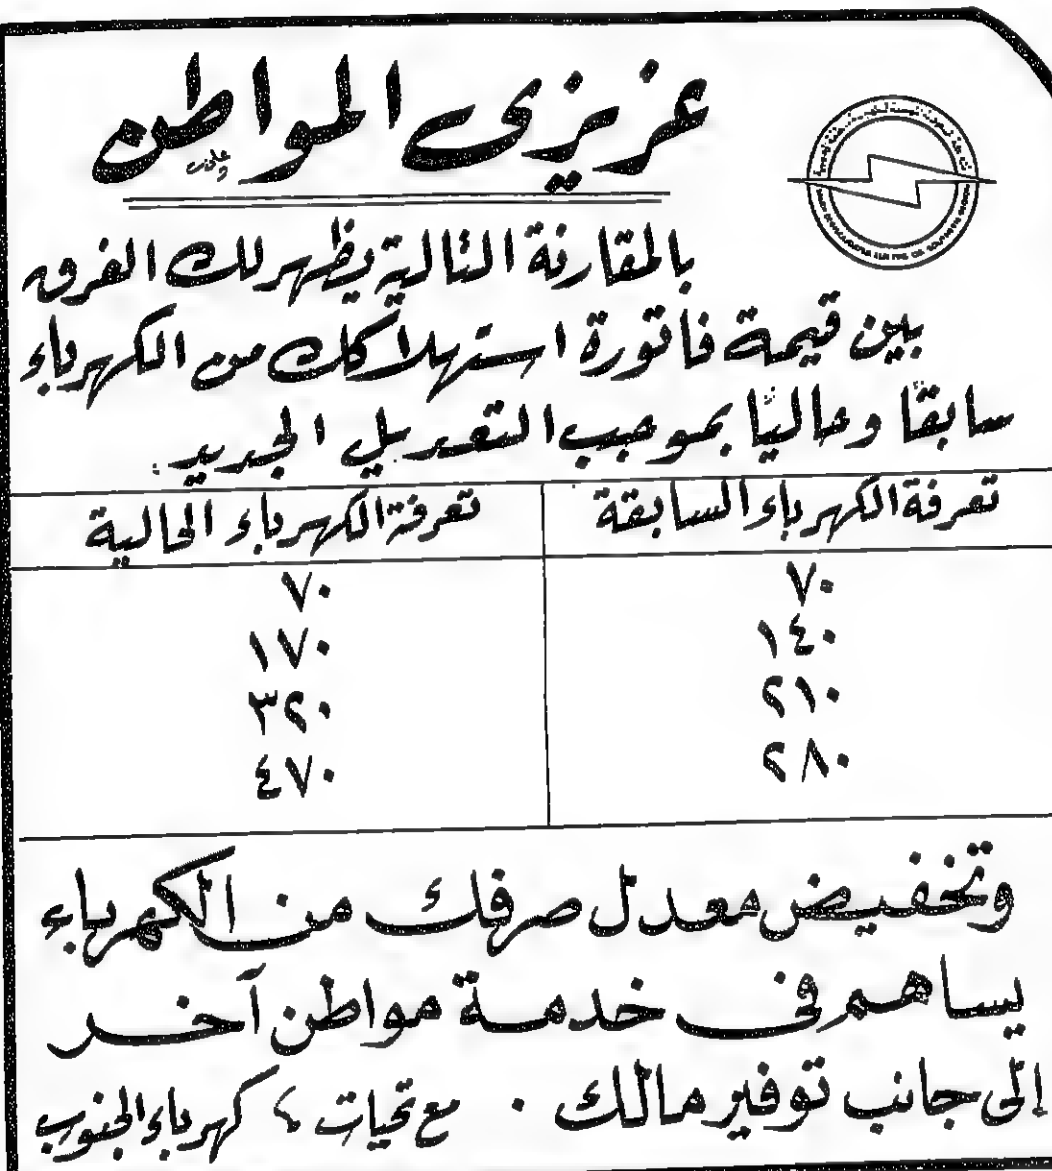 عزيزى المواطن
بالمقارنة التالية يظهر لك الفرق
بين قيمة فاتورة استهلاكك من الكهرباء
سابقًا وحاليًا بموجب التعديل الجديد:
تعرفة الكهرباء السابقة	تعرفة الكهرباء الحالية
٧٠	٧٠
١٤٠	١٧٠
٢١٠	٣٢٠
٢٨٠	٤٧٠
وتخفيض معدل صرفك من الكهرباء
يساهم فى خدمة مواطن آخر
إلى جانب توفير مالك . مع تحيات ، كهرباء الجنوب